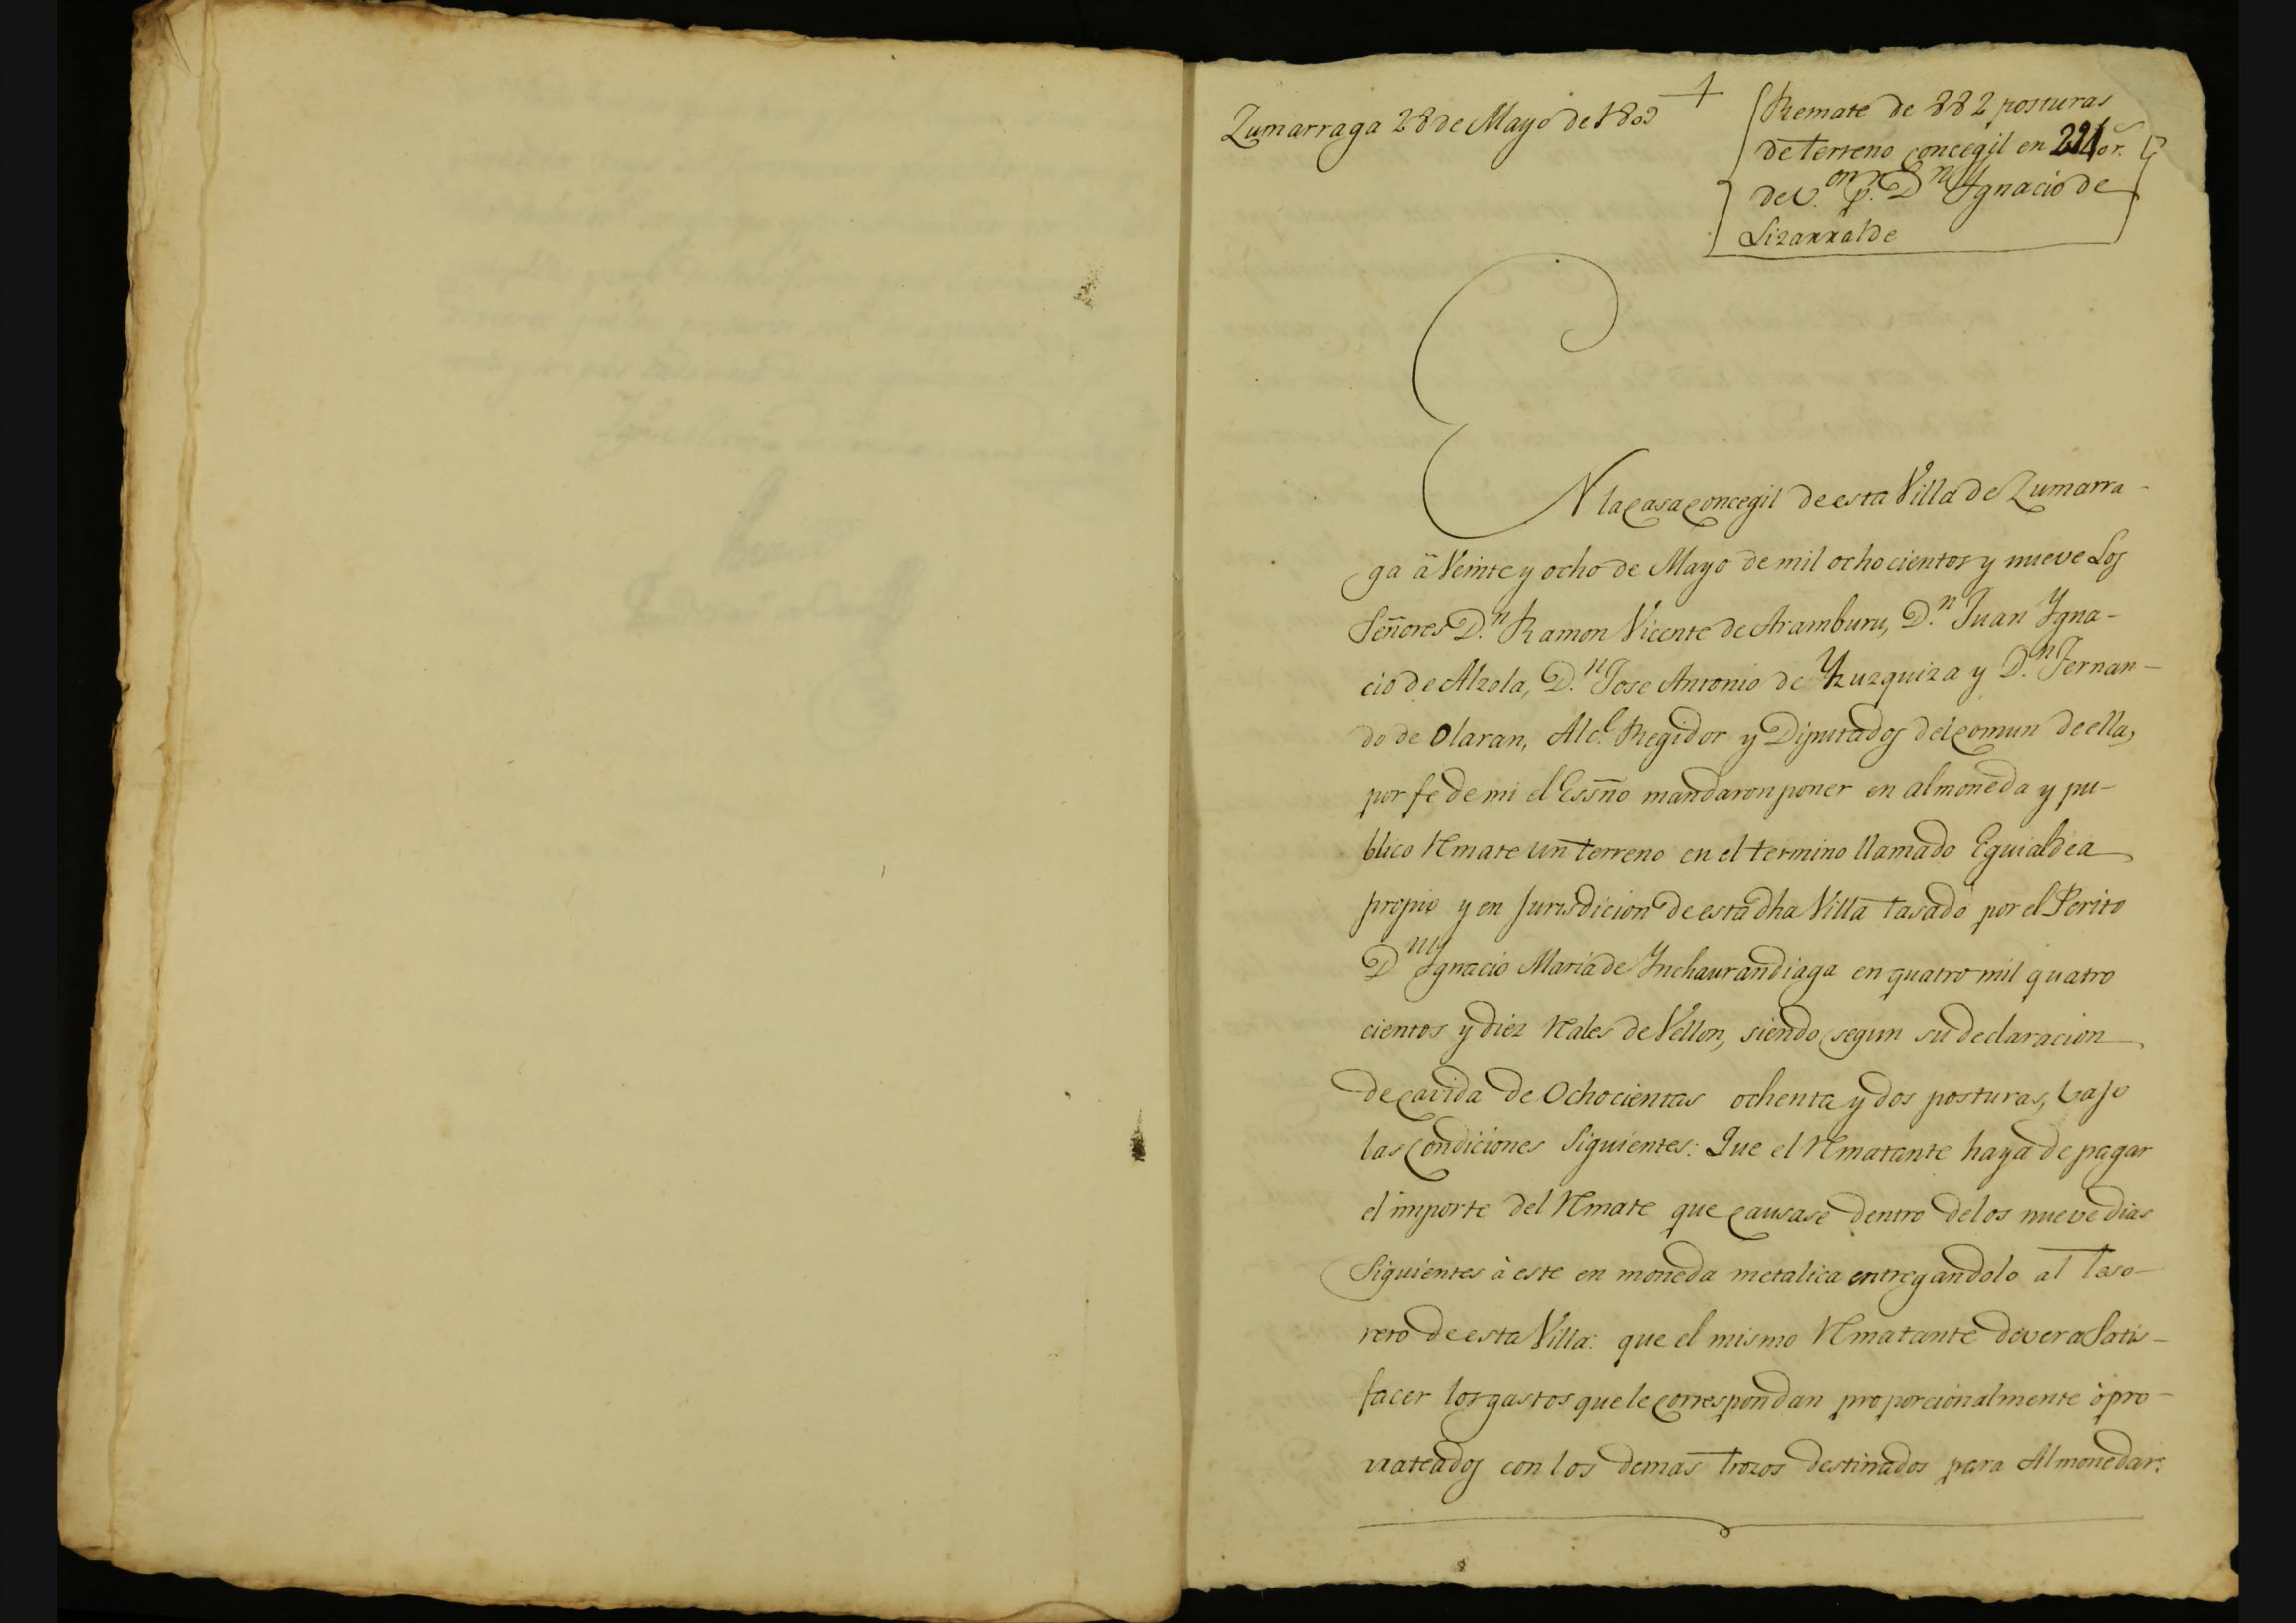 Zumarraga 28 de Mayo de 1809
Remate de 882 posturas
de terreno Concegil en
de v.on p.r D.n Ygnacio de
Lizarralde
EN la Casa Concegil de esta Villa de Zumarra-
ga â Veinte y ocho de Mayo de mil ochocientos y nueve Los
Señores D.n Ramon Vicente de Aramburu, D.n Juan Ygna-
cio de Alzola, D.n Jose Antonio de Yzuzquiza y D.n Fernan-
do de Olaran, Alc.l Regidor y Diputados del Comun de ella,
por fe de mi el Essño mandaron poner en almoneda y pu-
blico Rmate un terreno en el termino llamado Eguialdea
propio y en Jurisdicion de esta dha Villa tasado por el Perito
D.n Ygnacio Maria de Ynchaurandiaga en quatro mil quatro
cientos y diez Rales de Vellon, siendo segun su declaracion
de cavida de Ochocientas ochenta y dos posturas, vajo
las Condiciones Siguientes: Que el Rmatante haya de pagar
el importe del Rmate que Causase dentro de los nueve dias
Siguientes à este en moneda metalica entregandolo al Teso-
rero de esta Villa: que el mismo Rmatante devera Satis-
facer los gastos que le Correspondan proporcionalmente ò pro-
rrateados con los demas trozos destinados para Almonedar: